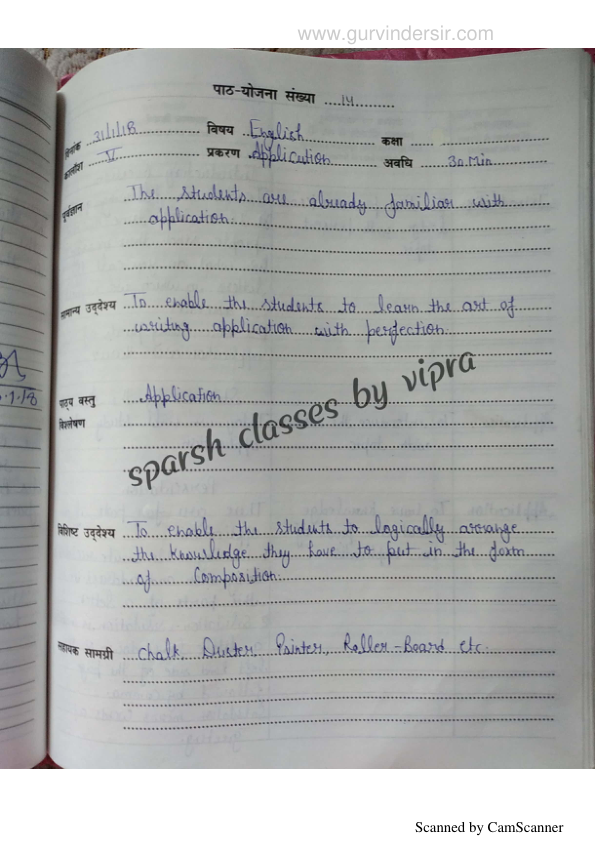 www.gurvindersir.com
पाठ-योजना संख्या ....14............
दिनांक 31/1/18 विषय English कक्षा
कालांश V प्रकरण Application अवधि 30 Min
पूर्वज्ञान The students are already familiar with
application.
सामान्य उद्देश्य To enable the students to learn the art of
writing application with perfection.
पाठ्य वस्तु Application
विश्लेषण
sparsh classes by vipra
विशिष्ट उद्देश्य To enable the students to logically arrange
the knowledge they have to put in the form
of Composition.
सहायक सामग्री Chalk, Duster, Pointer, Roller-Board etc.
1/18
Scanned by CamScanner